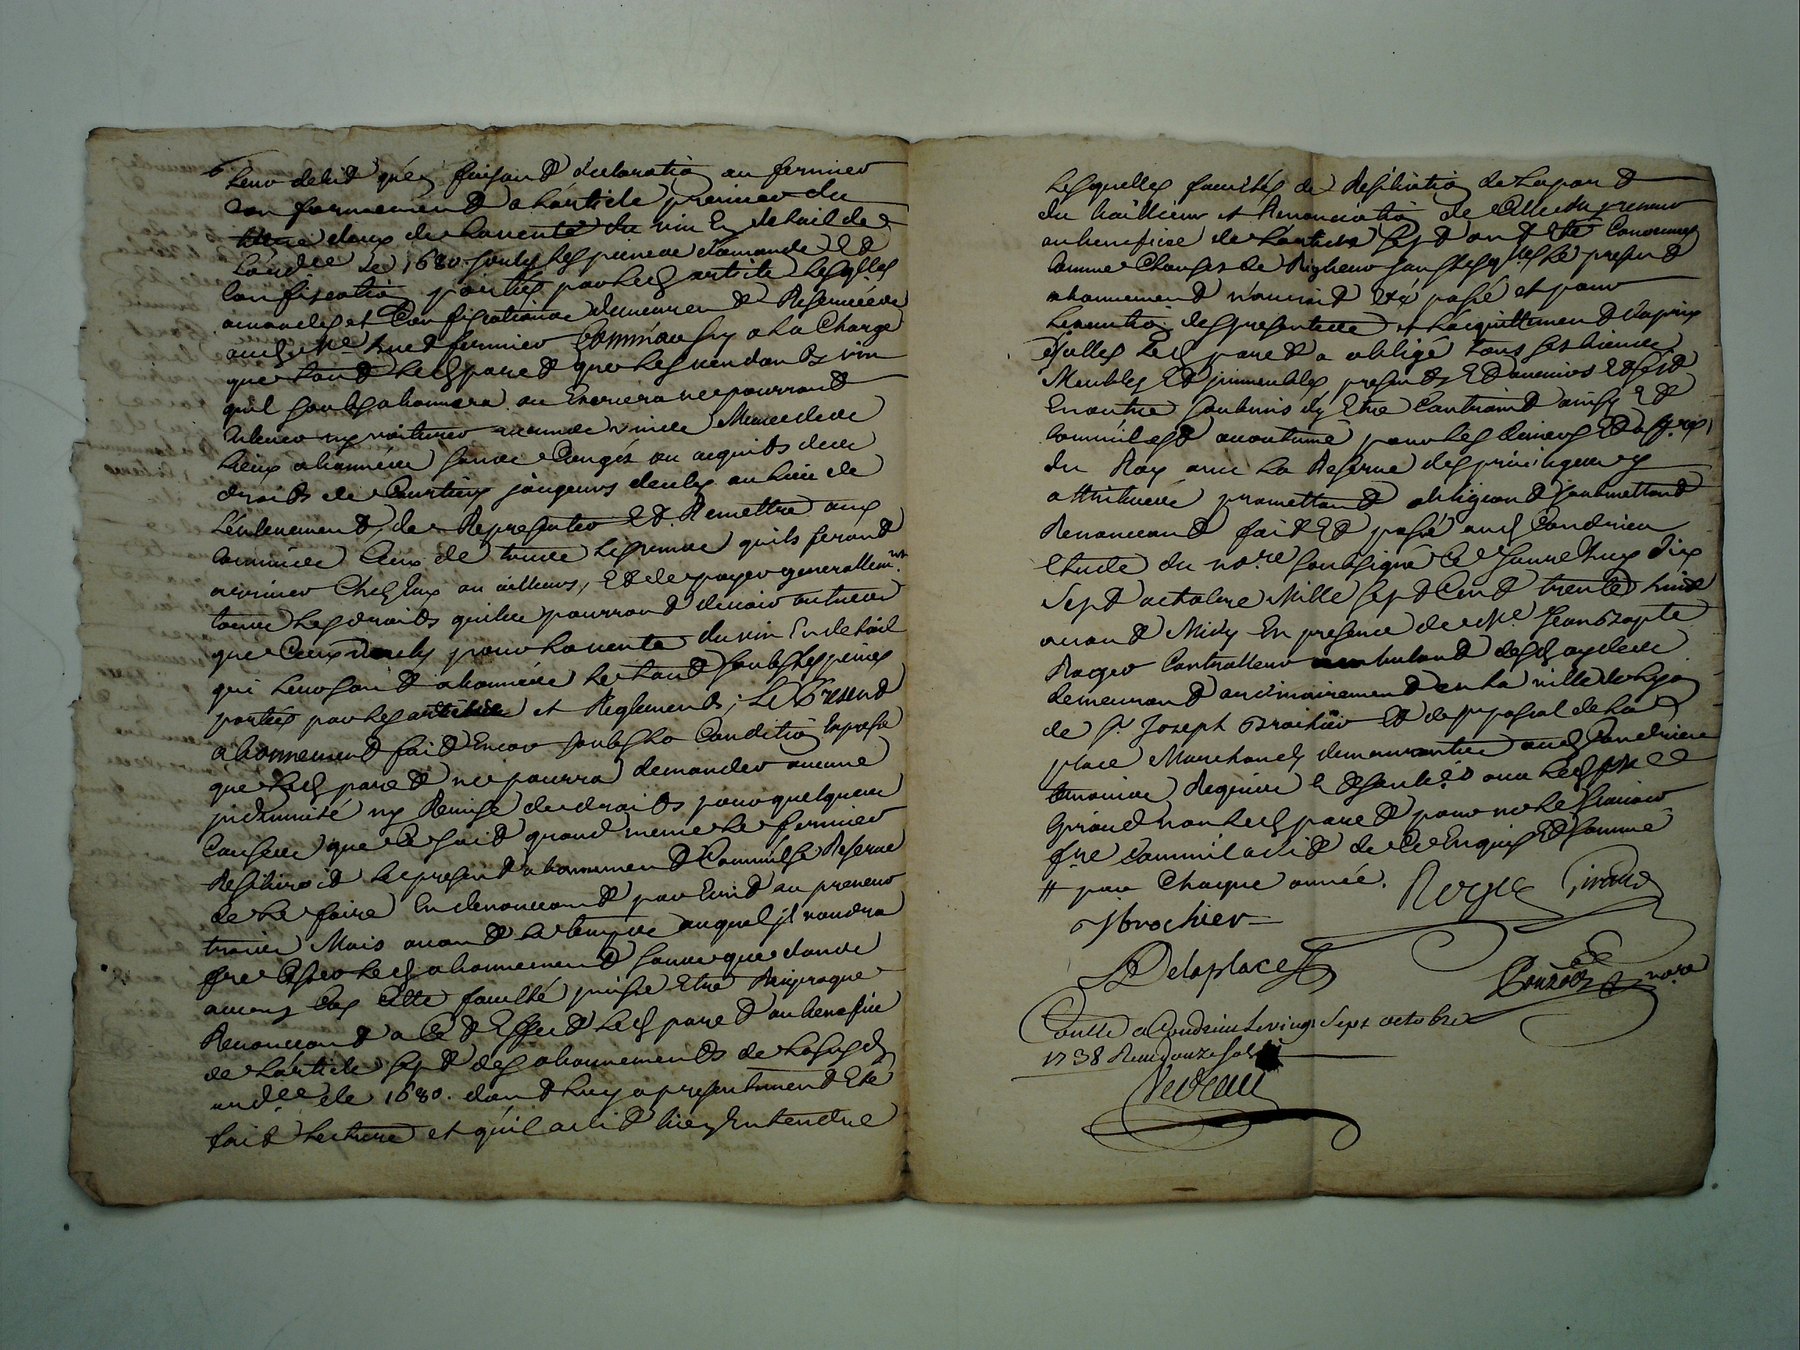 Leur debit qu'en faisant declaration au fermier
conformement a l'article premier du
titre deux de la vente du vin en detail de
l'ord.ce de 1680 soubs les peines d'amande et
confiscation portées par led. article lesqlles
amandes et confiscations demeurent reservées
aud. sr fermier comm'aussy a la charge
que tant led. paret que les vendants vin
qu'il soubsabonnera ou ne pourront
enlever ny voiturer aucuns vins
lieux abonnés sans congés ou acquits des
droits de courtiers jaugeurs d'eulx au lieu de
l'enlevement, de representer et remettre aux
commis ceux de tous les vins qu'ils feront
arriver chez eux ou ailleurs, et de payer generallem.nt
tous les droits qu'ils pourront devoir autres
que ceux deubs pour la vente du vin en detail
qui leur sont abonnés le tout soubs les peines
portées par les articles et Reglements; Le Present
abonnement fait encor soubs la condition expresse
que led. paret ne pourra demander aucune
indemnité ny Remise de droits pour quelques
causes que ce soit quand meme le fermier
Resiliroit le present abonnement comm'il se Reserve
de le faire en denonceant par ecrit au preneur
trois Mois avant le temps auquel il voudra
fre cesser led. abonnement sans que dans
aucun cas cette faculté puisse etre Reciproque
Renonceant a cet effet led. paret au benefice
de l'article sept des abonnements de lasusd.
ord.ce de 1680. dont luy a presentement eté
fait lecture et qu'il a dit bien entendre
Lesquelles facultés de Resiliation de la part
du bailleur et Renonciation de celle du preneur
au benefice de l'article sept ont eté convenues
comme clauses de Rigueur sans lesqlles le present
abonnement n'auroit eté passé et pour
l'execution des presentes et l'acquittement du prix
d'icelles led. paret a obligé tous ses biens
Meubles et immeubles presents et avenirs et s'est
en outre soubmis d'y etre contraint ainsy et
comm'il est accoutumé pour les deniers et affres
du Roy avec la Reserve des privileges y
attribués promettant obligeant soubmettant
Renonceant fait et passé aud. Condrieu
etude du no.re soubsigné ce jourd'huy dix
sept octobre Mille sept cent trente huit
avant Midy en presence de Me Jean Bapte
Roger Controlleur ambulant desd. aydes
demeurant ordinairement en la ville de Lyon
de sr Joseph Brochier et de sr pascal de la
place Marchands demeurants aud. Condrieu
temoins Requis et soubs.és avec led. sr
Giroud non led. paret pour ne le scavoir
fre comm'il a dit de ce enquis et sommé
# pour chaque année. Roger Giroud
J brochier
Delaplace
Gonzon no.re
Conlle a Condrieu le vingt sept octobre
1738 Receu douze sols
Nedeau